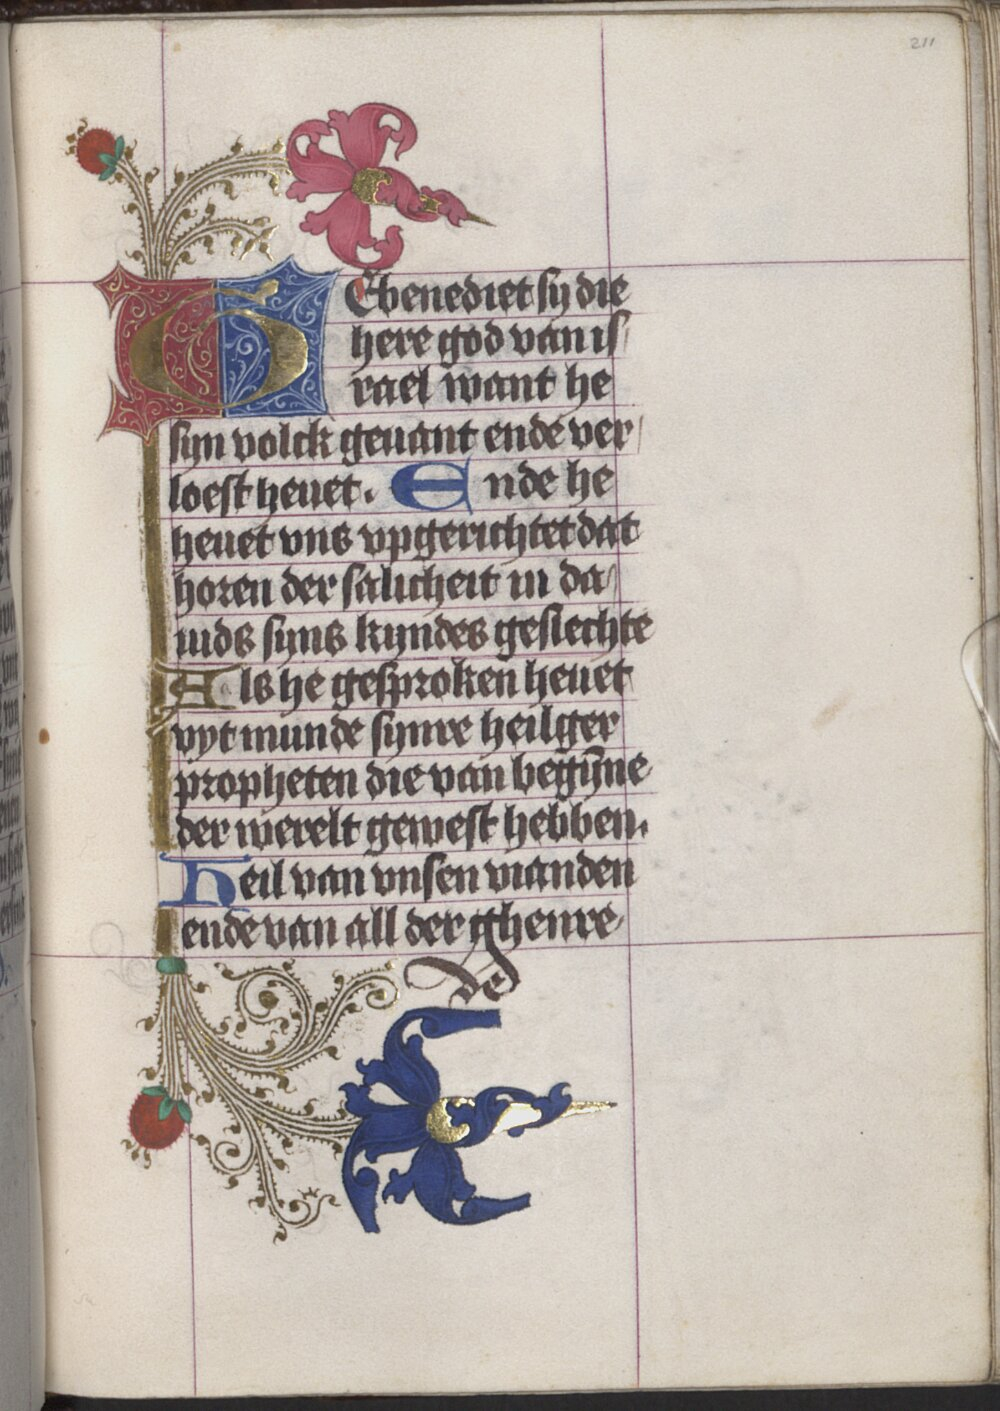 211
GEbenediet sy die
here god van is
rael want he
syn volck geuant ende ver
loest heuet. Ende he
heuet vns vpgerichtet dat
horen der salicheit in da
uids syns kyndes geslechte
Als he gesproken heuet
vyt munde synre heilger
propheten die van begyn̄ne
der werelt gewest hebben.
Heil van vnsen vianden
ende van all der ghenre
de